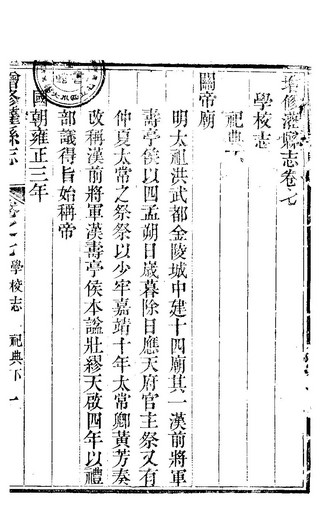 增修灌縣志卷七
學校志
祀典下
關帝廟
明太祖洪武都金陵城中建十四廟其一漢前將軍
壽亭侯以四孟朔日歲暮除日應天府官主祭又有
仲夏太常之祭祭以少牢嘉靖十年太常卿黃芳奏
改稱漢前將軍漢壽亭侯本謚壯繆天啟四年以禮
部議得旨始稱帝
國朝雍正三年
增修灌縣志
卷之七 學校志 祀典下 一